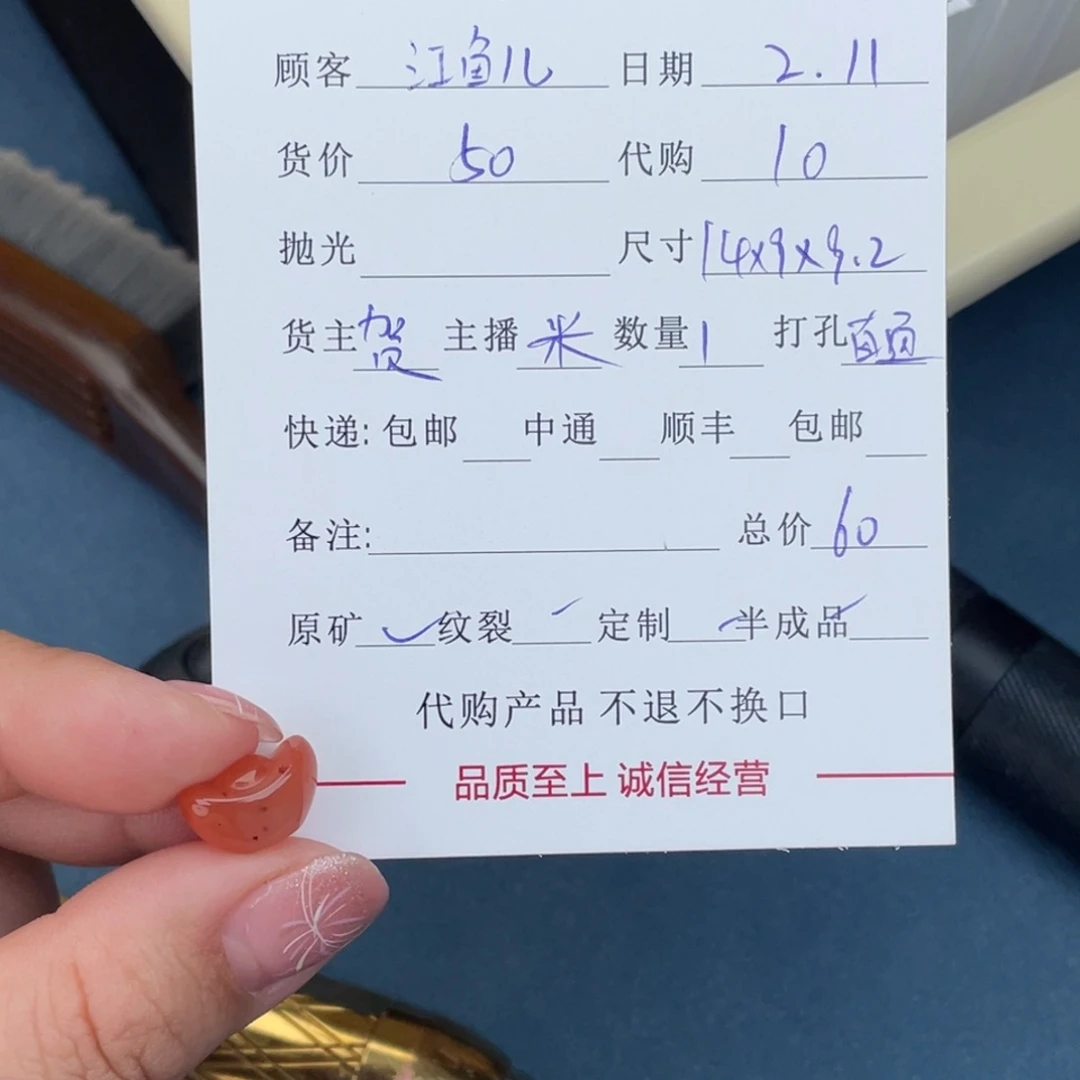 顾客 江鱼儿 日期 2.11
货价 50 代购 10
抛光 尺寸 14x9x9.2
货主 贺 主播 米 数量 1 打孔
快递: 包邮 中通 顺丰 包邮
备注: 总价 60
原矿 ✓ 纹裂 ✓ 定制 ✓ 半成品 ✓
代购产品 不退不换口
品质至上 诚信经营